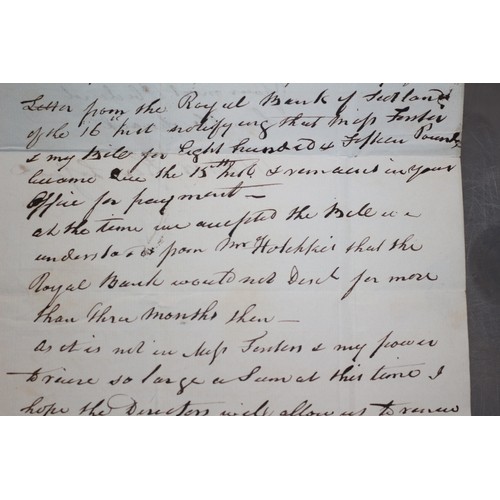 Letter from the Royal Bank of Scotland
of the 16th inst notifying that Miss Foster
& my Bill for Eight hundred & fifteen Pounds
became due the 15th Inst & remains in your
Office for payment —
at the time we accepted the Bill we
understood from Mr Hotchkis that the
Royal Bank would not Disct for more
than three months then —
as it is not in Miss Fosters & my power
to raise so large a Sum at this time I
hope the Directors will allow us to renew